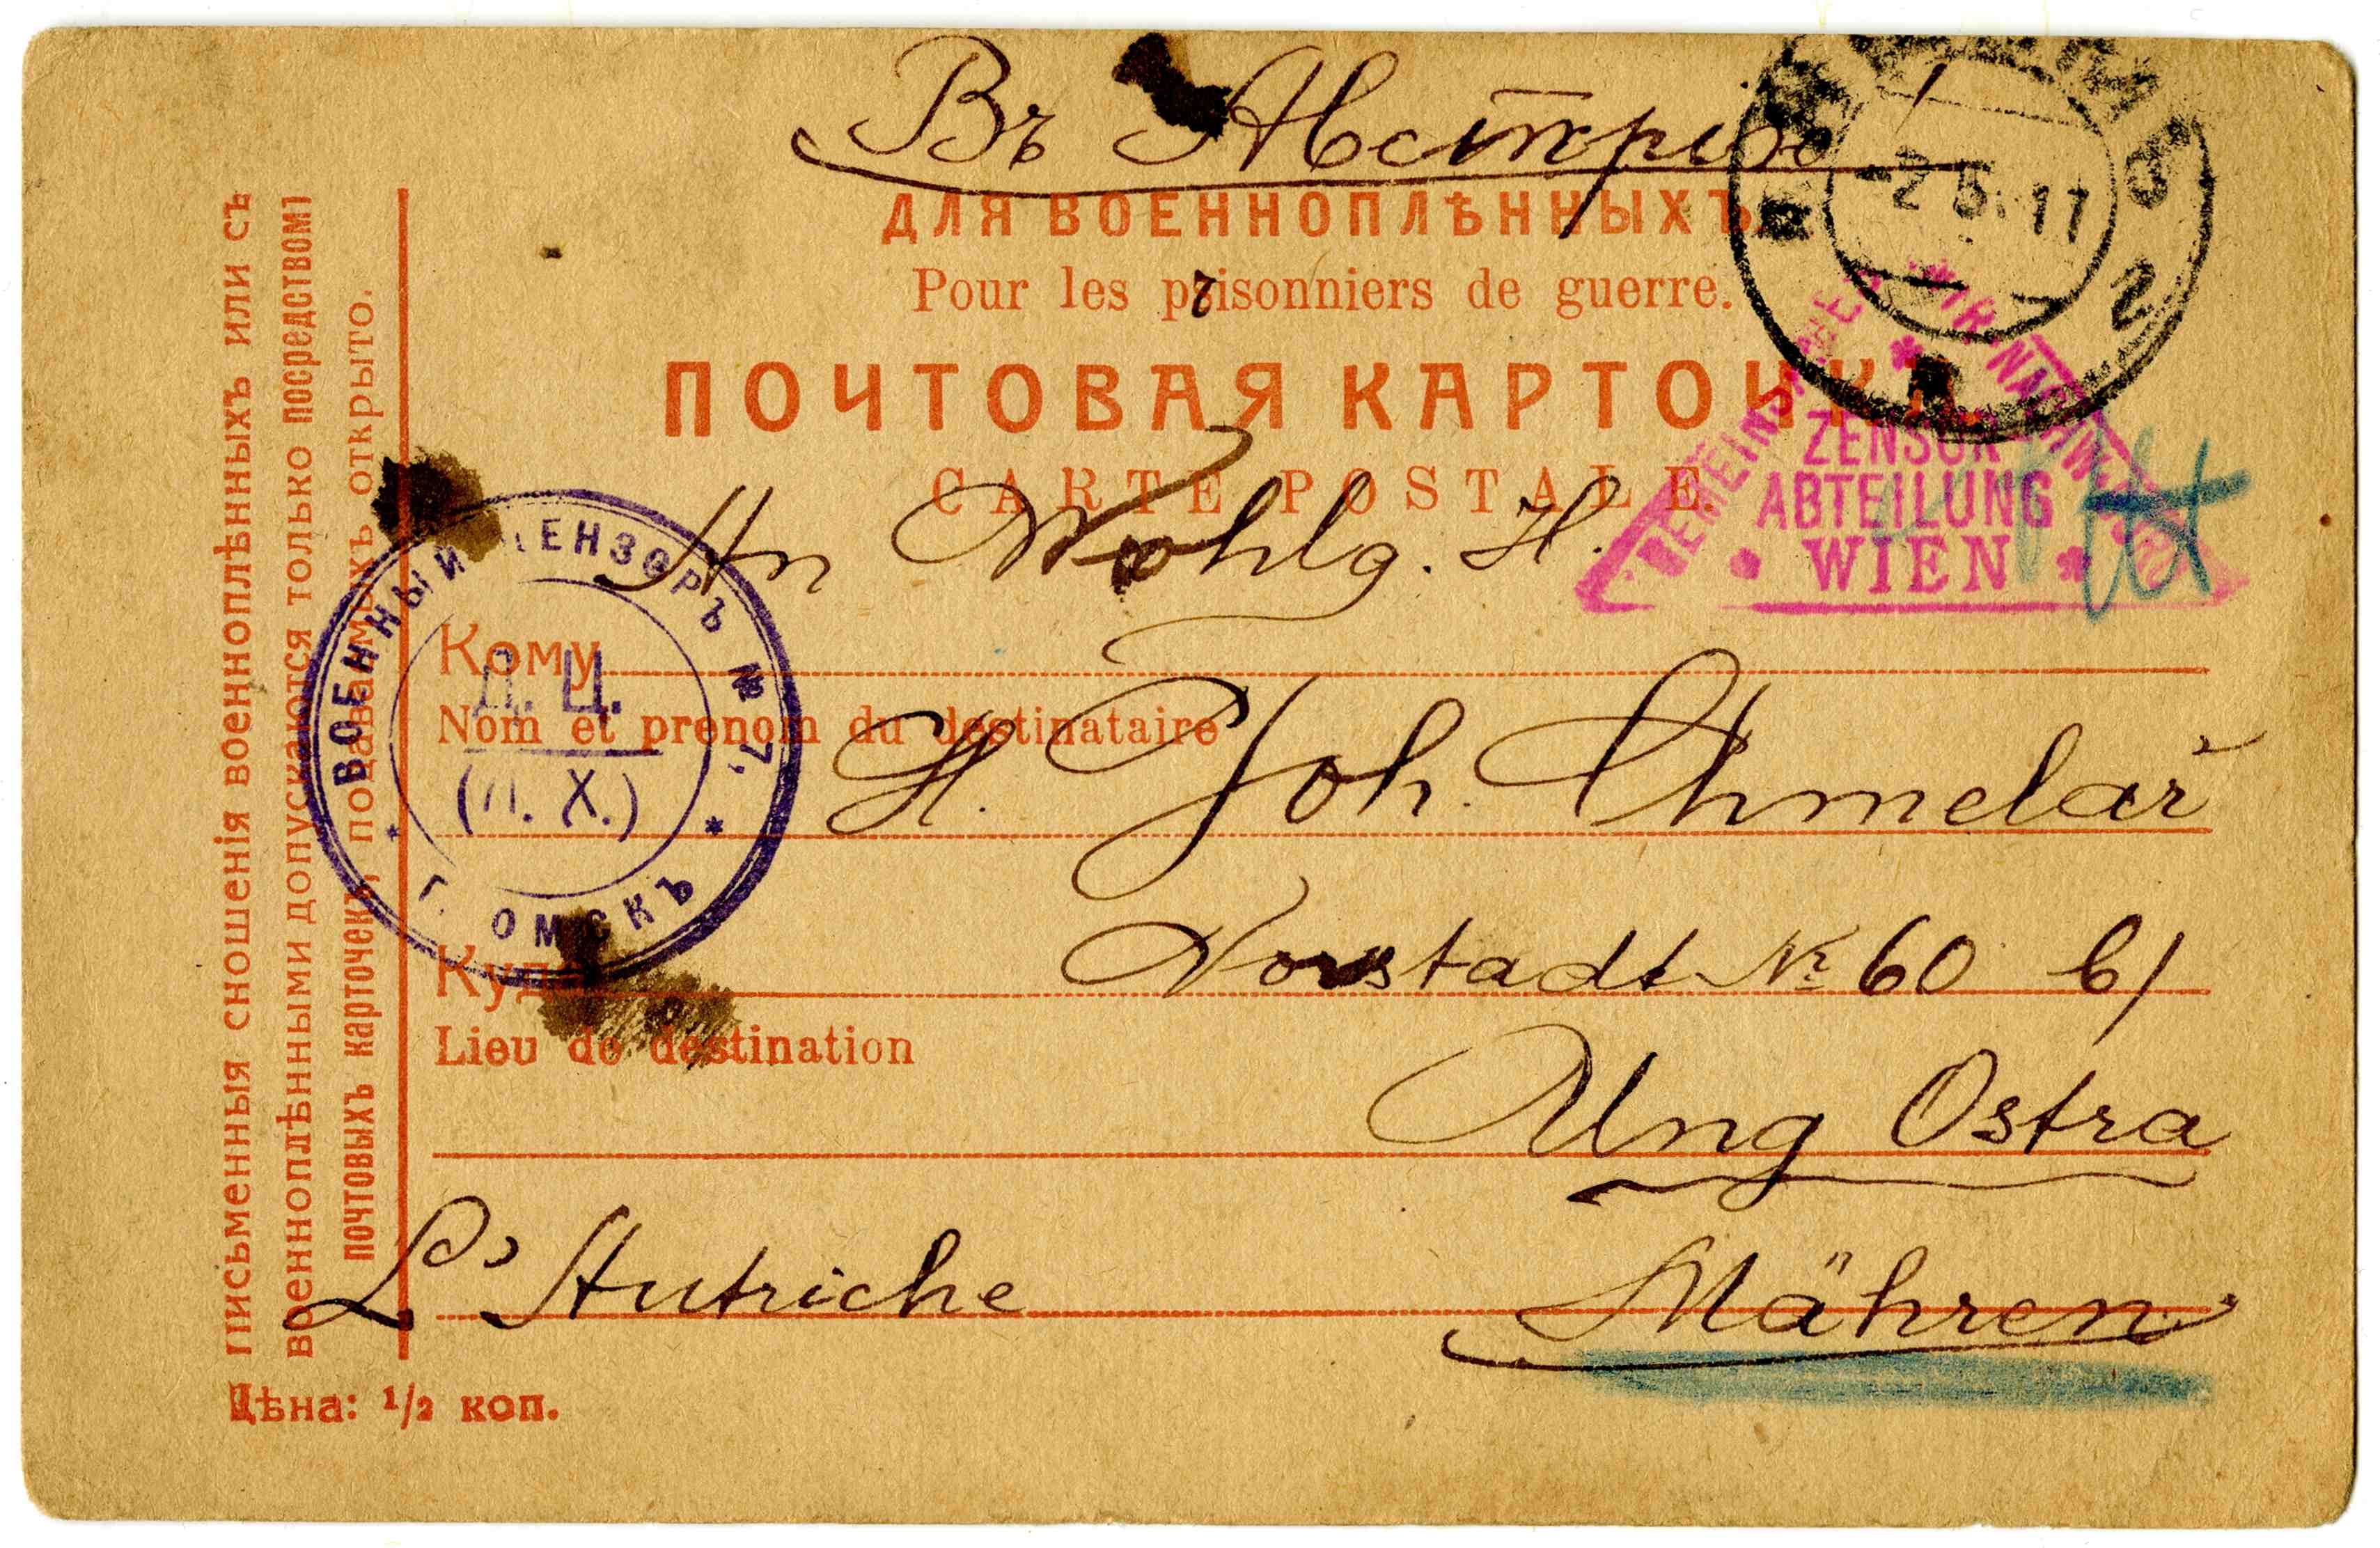 Въ Австрію
ДЛЯ ВОЕННОПЛѢННЫХЪ.
Pour les prisonniers de guerre.
ПОЧТОВАЯ КАРТОЧКА.
CARTE POSTALE.
2 5 17
ZENSUR
ABTEILUNG
WIEN
An Wohlg. H.
Кому
Nom et prenom du destinataire
H. Joh. Chmelař
ВОЕННЫЙ ЦЕНЗОРЪ № 7,
Д. Ц.
(Л. Х.)
Г. ОМСКЪ
Куда
Vorstadt № 60 b/
Lieu de destination
Ung Ostra
L'Autriche
Mähren
Письменныя сношенія военноплѣнныхъ или съ
военноплѣнными допускаются только посредствомъ
почтовыхъ карточекъ, подаваемыхъ открыто.
Цѣна: 1/2 коп.